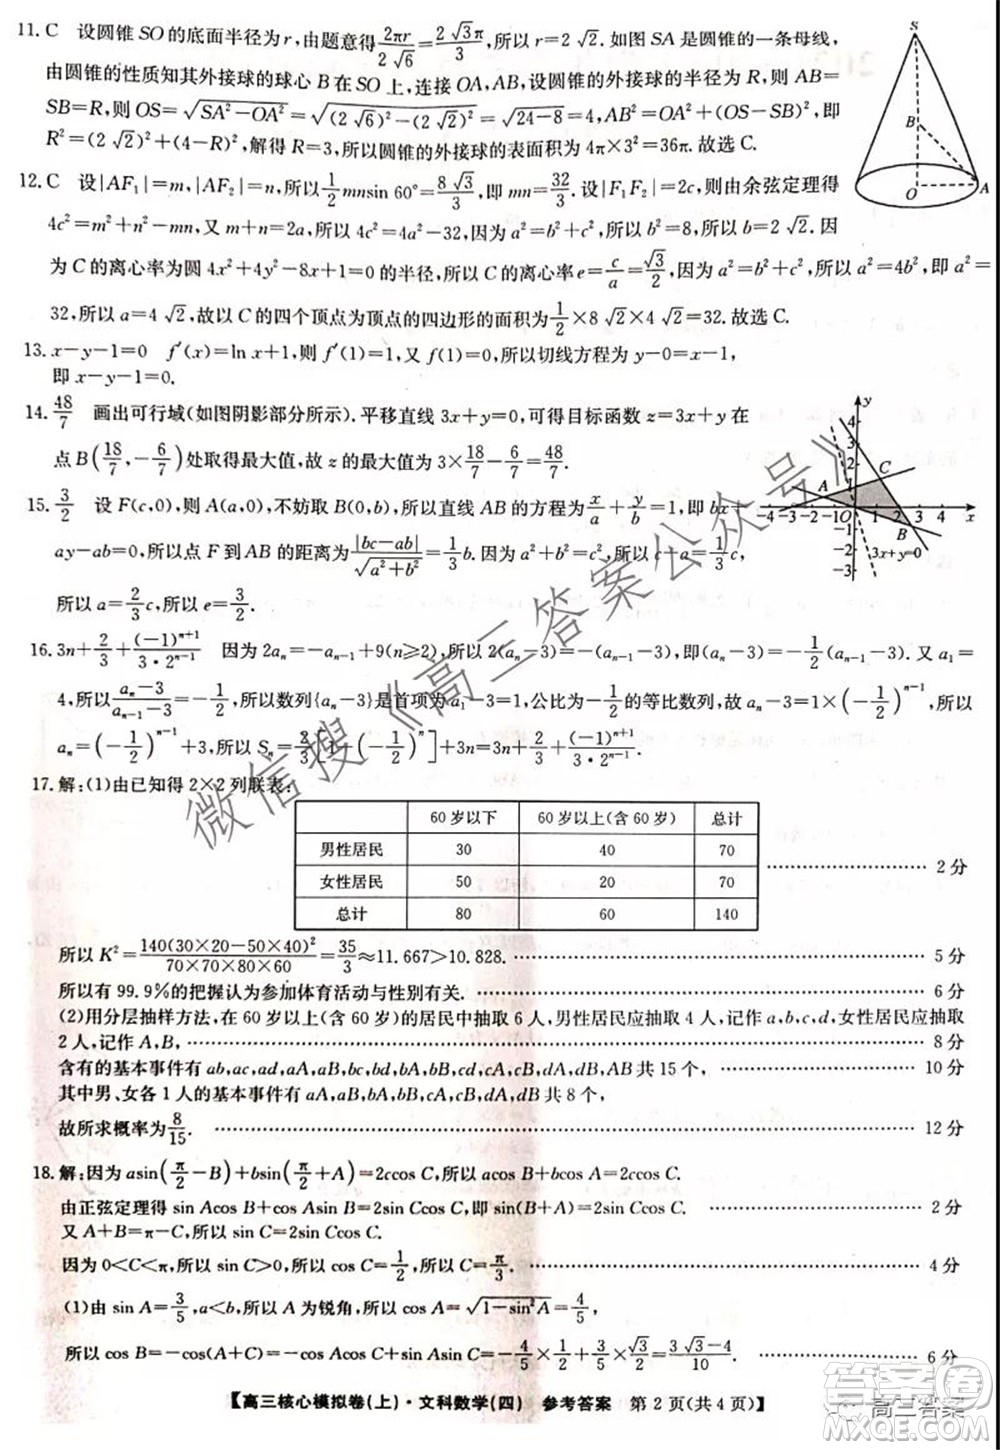 11. C 设圆锥SO的底面半径为r,由题意得\frac{2πr}{2√6}=\frac{2√3π}{3},所以r=2√2.如图SA是圆锥的一条母线,
由圆锥的性质知其外接球的球心B在SO上,连接OA,AB,设圆锥的外接球的半径为R,则AB=
SB=R,则OS=√(SA²-OA²)=√((2√6)²-(2√2)²)=√(24-8)=4,所以(4-R)²+(2√2)²=
R²=(2√2)²+(4-R)²,解得R=3,所以圆锥的外接球的表面积为4π×3²=36π.故选C.
12. C 设|AF₁|=m,|AF₂|=n,所以\frac{1}{2}mnsin 60°=\frac{8√3}{3},即mn=\frac{32}{3}.设|F₁F₂|=2c,则由余弦定理得
4c²=m²+n²-mn,又m+n=2a,所以4c²=4a²-32,因为a²=b²+c²,所以b²=8,所以b=2√2.因
为C的离心率为圆4x²+4y²-8x+1=0的半径,所以C的离心率e=\frac{c}{a}=\frac{√3}{2},因为a²=b²+c²,所以a²=4b²,即a²=
32,所以a=4√2,故以C的四个顶点为顶点的四边形的面积为\frac{1}{2}×8√2×4√2=32.故选C.
13. x-y-1=0 f′(x)=ln x+1,则f′(1)=1,又f(1)=0,所以切线方程为y-0=x-1,
即x-y-1=0.
14. \frac{48}{7} 画出可行域(如图阴影部分所示).平移直线3x+y=0,可得目标函数z=3x+y在
点B(\frac{18}{7},-\frac{6}{7})处取得最大值,故z的最大值为3×\frac{18}{7}-\frac{6}{7}=\frac{48}{7}.
15. \frac{3}{2} 设F(c,0),则A(a,0),不妨取B(0,b),所以直线AB的方程为\frac{x}{a}+\frac{y}{b}=1,即bx+
ay-ab=0,所以点F到AB的距离为\frac{|bc-ab|}{√(a²+b²)}=\frac{1}{3}b,因为a²+b²=c²,所以c-a=\frac{1}{3}c,
所以a=\frac{2}{3}c,所以e=\frac{3}{2}.
16. 3n+\frac{2}{3}+\frac{(-1)^{n+1}}{3·2^{n-1}} 因为2aₙ=-aₙ₋₁+9(n≥2),所以2(aₙ-3)=-(aₙ₋₁-3),即aₙ-3=-\frac{1}{2}(aₙ₋₁-3).又a₁=
4,所以\frac{aₙ-3}{aₙ₋₁-3}=-\frac{1}{2},所以数列{aₙ-3}是首项为a₁-3=1,公比为-\frac{1}{2}的等比数列,故aₙ-3=1×(-\frac{1}{2})^{n-1},所以
aₙ=(-\frac{1}{2})^{n-1}+3,所以Sₙ=\frac{2}{3}[1-(-\frac{1}{2})^n]+3n=3n+\frac{2}{3}+\frac{(-1)^{n+1}}{3·2^{n-1}}.
17. 解:(1)由已知得2×2列联表:
60岁以下 60岁以上(含60岁) 总计
男性居民 30 40 70
女性居民 50 20 70
总计 80 60 140
2分
所以K²=\frac{140(30×20-50×40)²}{70×70×80×60}=\frac{35}{3}≈11.667>10.828. 5分
所以有99.9%的把握认为参加体育活动与性别有关. 6分
(2)用分层抽样方法,在60岁以上(含60岁)的居民中抽取6人,男性居民应抽取4人,记作a,b,c,d,女性居民应抽取
2人,记作A,B, 8分
含有的基本事件有ab,ac,ad,aA,aB,bc,bd,bA,bB,cd,cA,cB,dA,dB,AB共15个, 10分
其中男、女各1人的基本事件有aA,aB,bA,bB,cA,cB,dA,dB共8个,
故所求概率为\frac{8}{15}. 12分
18. 解:因为asin(\frac{π}{2}-B)+bsin(\frac{π}{2}+A)=2ccos C,所以acos B+bcos A=2ccos C.
由正弦定理得sin Acos B+cos Asin B=2sin Ccos C,即sin(B+A)=2sin Ccos C, 2分
又A+B=π-C,所以sin C=2sin Ccos C.
因为0<C<π,所以sin C>0,所以cos C=\frac{1}{2},所以C=\frac{π}{3}. 4分
(1)由sin A=\frac{3}{5},a<b,所以A为锐角,所以cos A=√(1-sin²A)=\frac{4}{5},
所以cos B=-cos(A+C)=-cos Acos C+sin Asin C=-\frac{4}{5}×\frac{1}{2}+\frac{3}{5}×\frac{√3}{2}=\frac{3√3-4}{10}. 6分
【高三核心模拟卷(上)·文科数学(四) 参考答案 第2页(共4页)】
微信搜《高三答案公众号》
高三答案